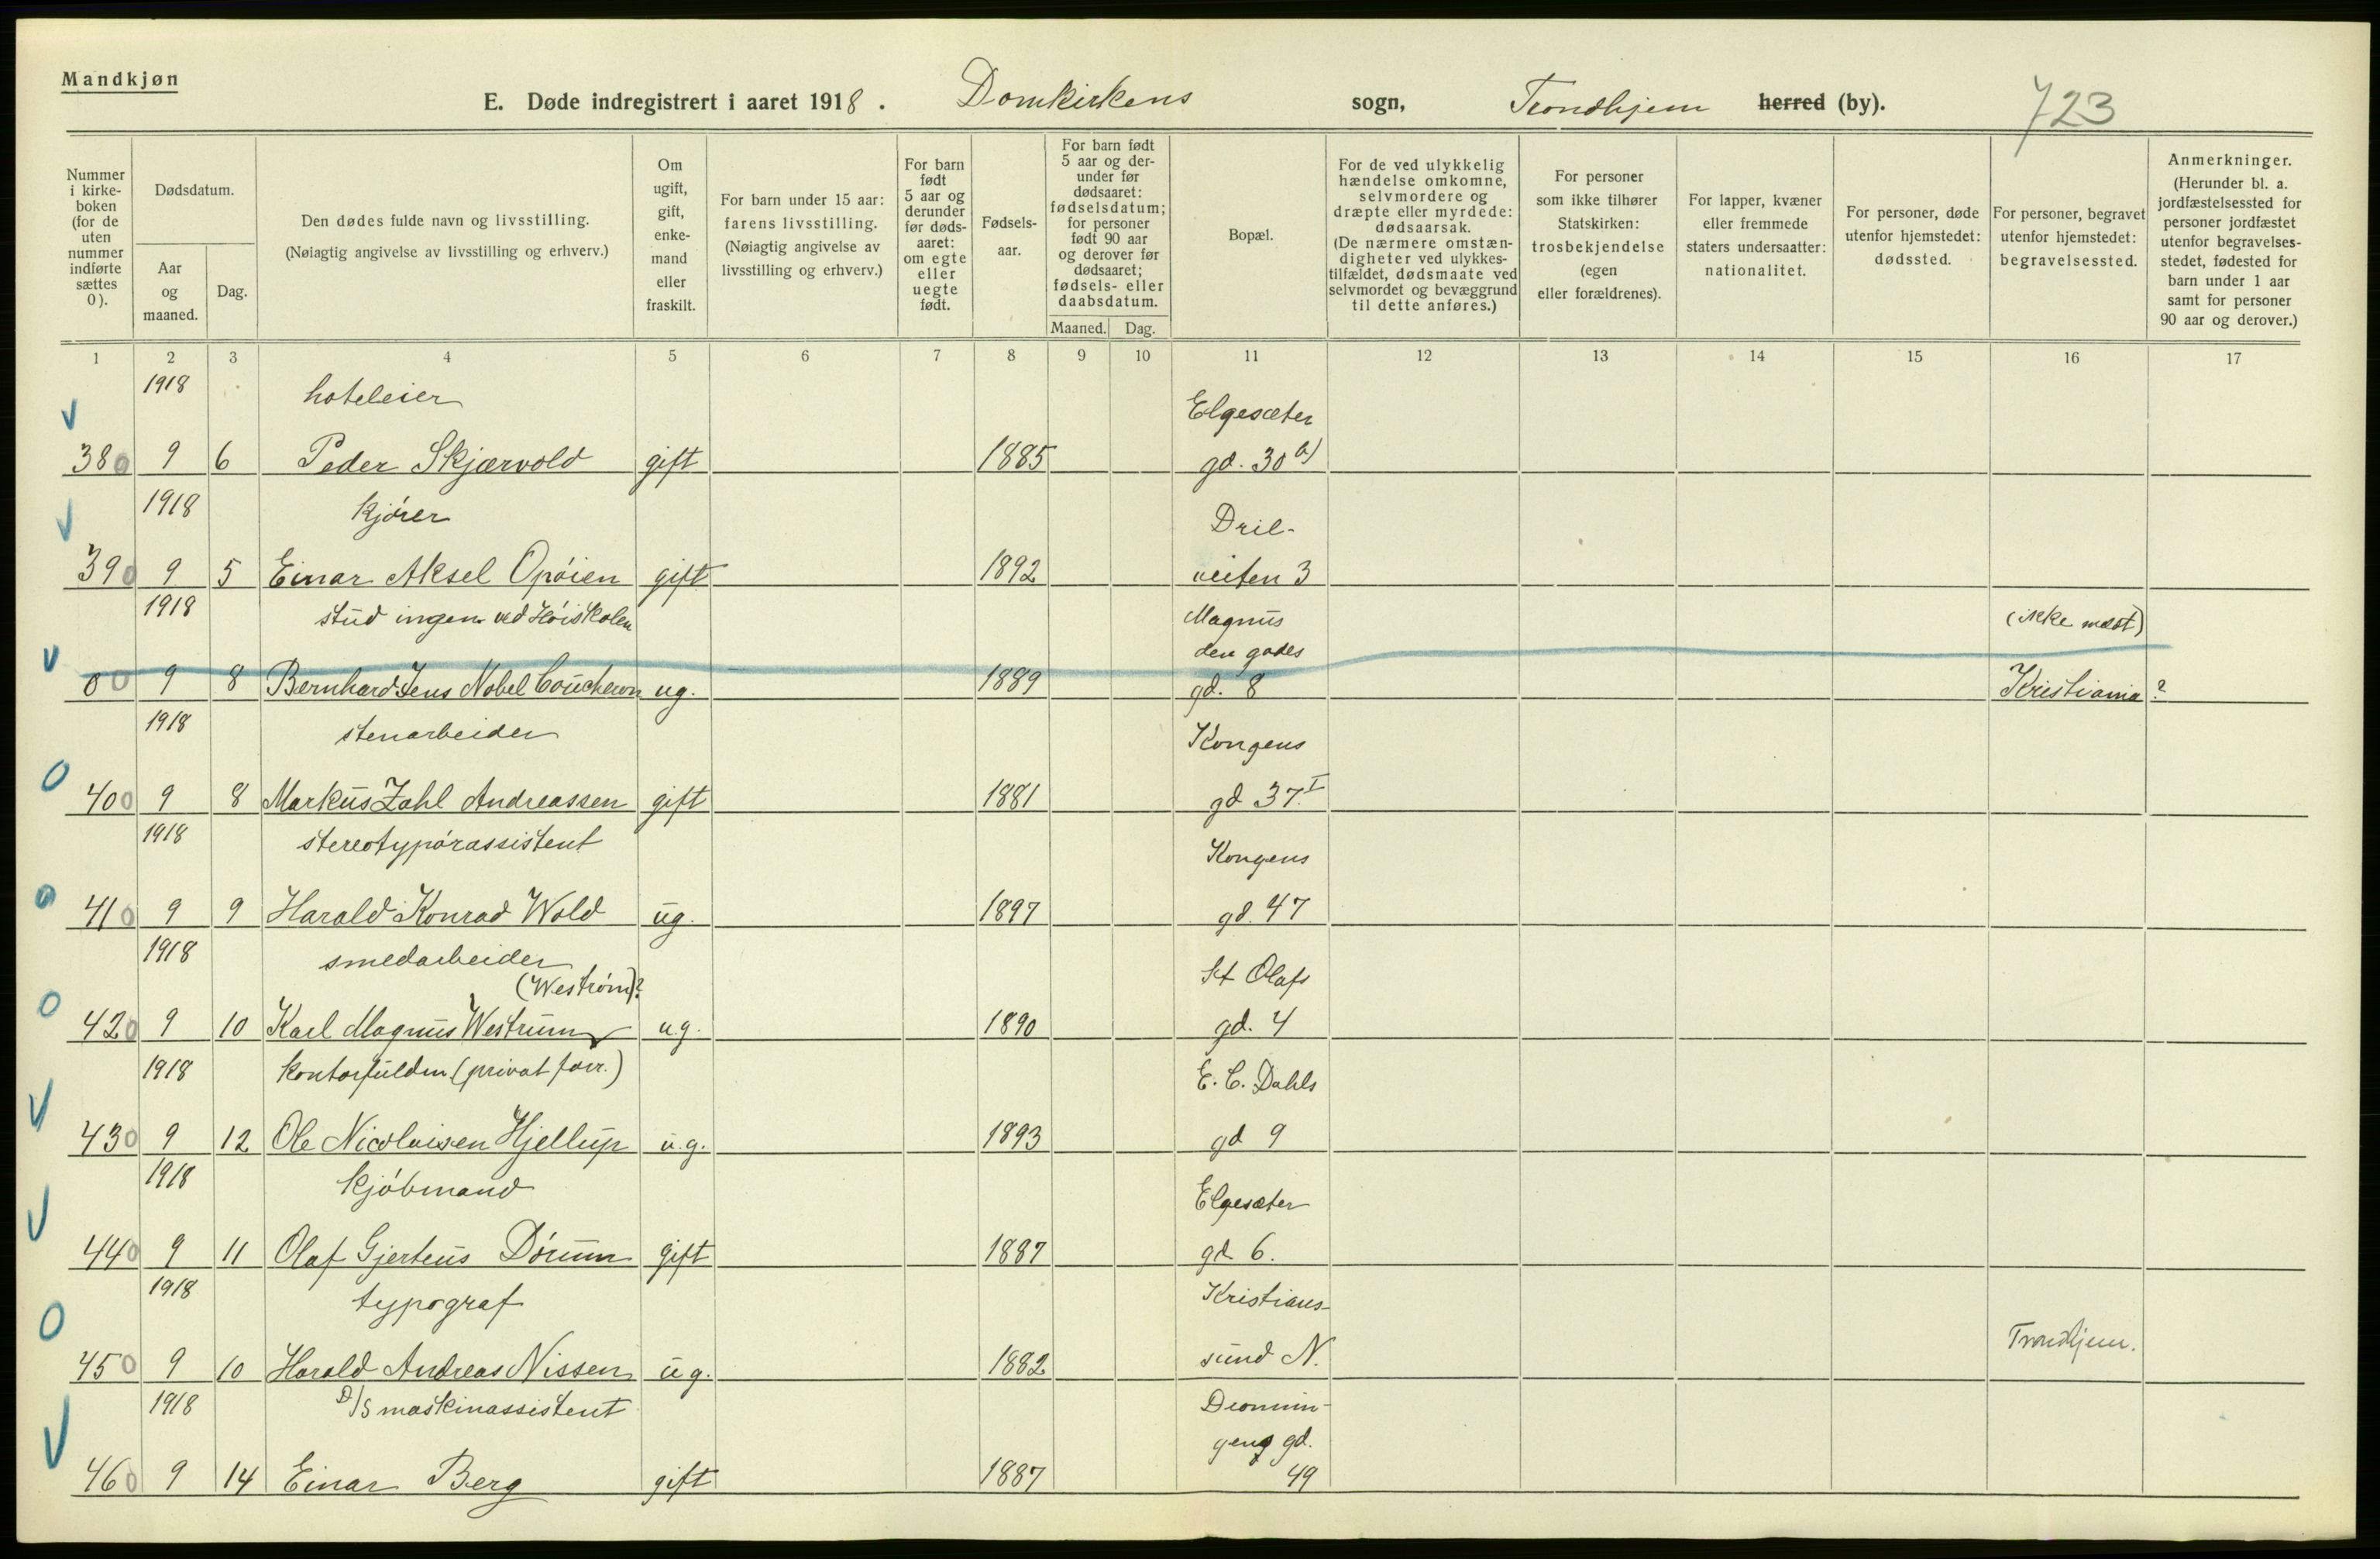 Mandkjøn
E. Døde indregistrert i aaret 1918. Domkirkens sogn, Trondhjem herred (by). 723
Nummer i kirkeboken (for de uten nummer indførte sættes 0).
Dødsdatum.
Aar og maaned.
Dag.
Den dødes fulde navn og livsstilling.
(Nøiagtig angivelse av livsstilling og erhverv.)
Om ugift, gift, enkemand eller fraskilt.
For barn under 15 aar: farens livsstilling.
(Nøiagtig angivelse av livsstilling og erhverv.)
For barn født 5 aar og derunder før dødsaaret: om egte eller uegte født.
Fødselsaar.
For barn født 5 aar og derunder før dødsaaret: fødselsdatum; for personer født 90 aar og derover før dødsaaret; fødsels- eller daabsdatum.
Maaned. Dag.
Bopæl.
For de ved ulykkelig hændelse omkomne, selvmordere og dræpte eller myrdede: dødsaarsak. (De nærmere omstændigheter ved ulykkestilfældet, dødsmaate ved selvmordet og bevæggrund til dette anføres.)
For personer som ikke tilhører Statskirken: trosbekjendelse (egen eller forældrenes).
For lapper, kvæner eller fremmede staters undersaatter: nationalitet.
For personer, døde utenfor hjemstedet: dødssted.
For personer, begravet utenfor hjemstedet: begravelsessted.
Anmerkninger. (Herunder bl. a. jordfæstelsessted for personer jordfæstet utenfor begravelsesstedet, fødested for barn under 1 aar samt for personer 90 aar og derover.)
1 2 3 4 5 6 7 8 9 10 11 12 13 14 15 16 17
1918 hoteleier Elgesæter
380 9 6 Peder Skjærvold gift 1885 gd. 30 a)
1918 kjører Dril-
390 9 5 Einar Aksel Opøien gift 1892 veiten 3
1918 stud ingen. ved Høiskolen Magnus (ikke mdt)
den godes
00 9 8 Bernhard Jens Nobel Coucheron ug. 1889 gd. 8 Kristiania ?
1918 stenarbeider Kongens
400 9 8 Markus Zahl Andreassen gift 1881 gd 37. I
1918 stereotypørassistent Kongens
410 9 9 Harald Konrad Wold ug. 1897 gd. 47
1918 smedarbeider St Olafs
(Westrøm)?
420 9 10 Karl Magnus Westrum u.g. 1890 gd. 4
1918 kontorfuldm. (privat forr.) E. C. Dahls
430 9 12 Ole Nicolaisen Hjellup u.g. 1893 gd 9
1918 kjøbmand Elgesæter
440 9 11 Olaf Gjerteus Dørum gift 1887 gd 6.
1918 typograf Kristians-
450 9 10 Harald Andreas Nissen ug. 1882 sund N. Trondhjem.
1918 D/S maskinassistent Dronnin-
gens gd.
460 9 14 Einar Berg gift 1887 49